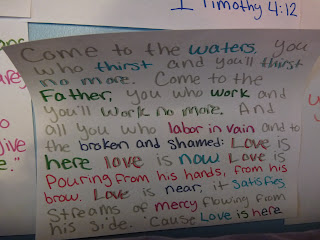 I Timothy 4:12
Come to the waters, you
who thirst and you'll thirst
no more. Come to the
Father, you who work and
you'll work no more. And
all you who labor in vain and to
the broken and shamed: Love is
here love is now Love is
Pouring from his hands, from his
brow. Love is near, it satisfies
Streams of mercy flowing from
his side. 'Cause Love is here